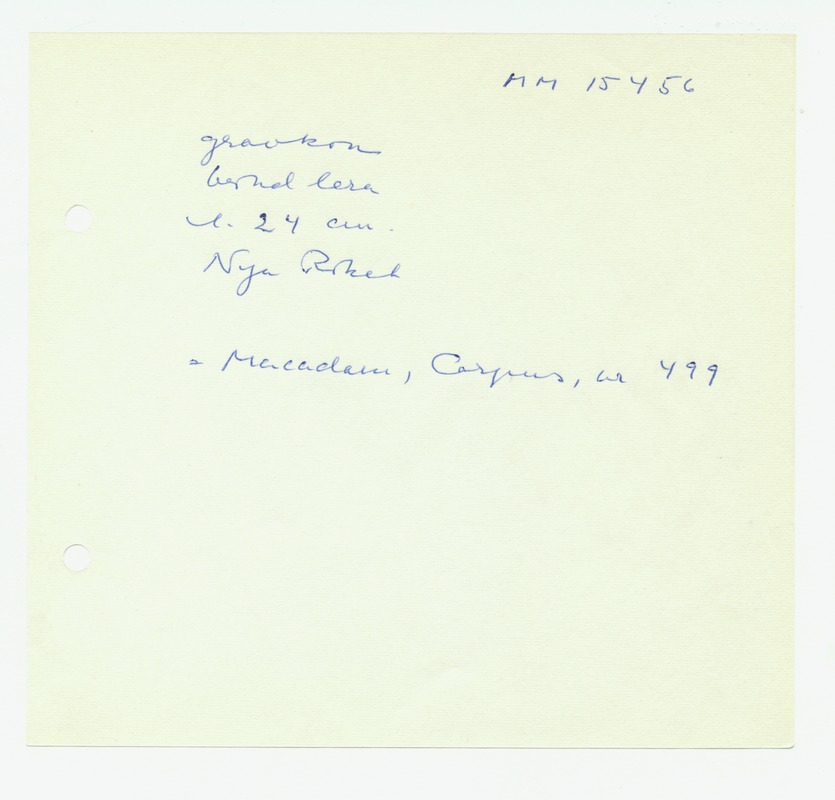 MM 15456
gravkon
bränd lera
l. 24 cm.
Nya Riket
= Macadam, Corpus, nr 499